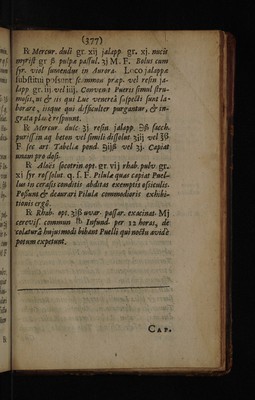 (377)
℞ Mercur. dulc. gr. xij jalapp gr. xj. nucis
myrist gr ß pulpæ passul. ʒj M. F. Bolus cum
syr. viol sumendus in Aurora. Loco jalappæ
substitui possunt scammon præp. vel resin ja-
lapp gr. iij vel iiij. Conveni& Pueris simul stru-
mosis, ut & iis qui Lue venereâ suspecti sunt la-
borare, iisque qui difficulter purgantur, & in-
grata placè respuunt.
℞ Mercur. dulc ʒj resin jalapp. ℈ß sacch.
puriss in aq beton vel simili dissolut ʒiij vel ℥ß.
F sec art Tabellæ pond. ℈ijß vel ʒj. Capiat
unam pro dosi.
℞ Aloës socotrin opt. gr. vij rhab. pulv. gr.
xj syr ros solut. q. s. F. Pilulæ quas capiat Puel-
lus in cerasis conditis abditas exemptis ossiculis.
Possunt & deaurari Pilulæ commodioris exhibi-
tionis ergô.
℞ Rhab. opt. ʒiß uvar. passar. exacinat. Mj
cerevis. commun Infund. per 12 horas, de
colaturâ hujusmodi bibant Puelli qui noctu avidè
potum expetunt.
CAP.